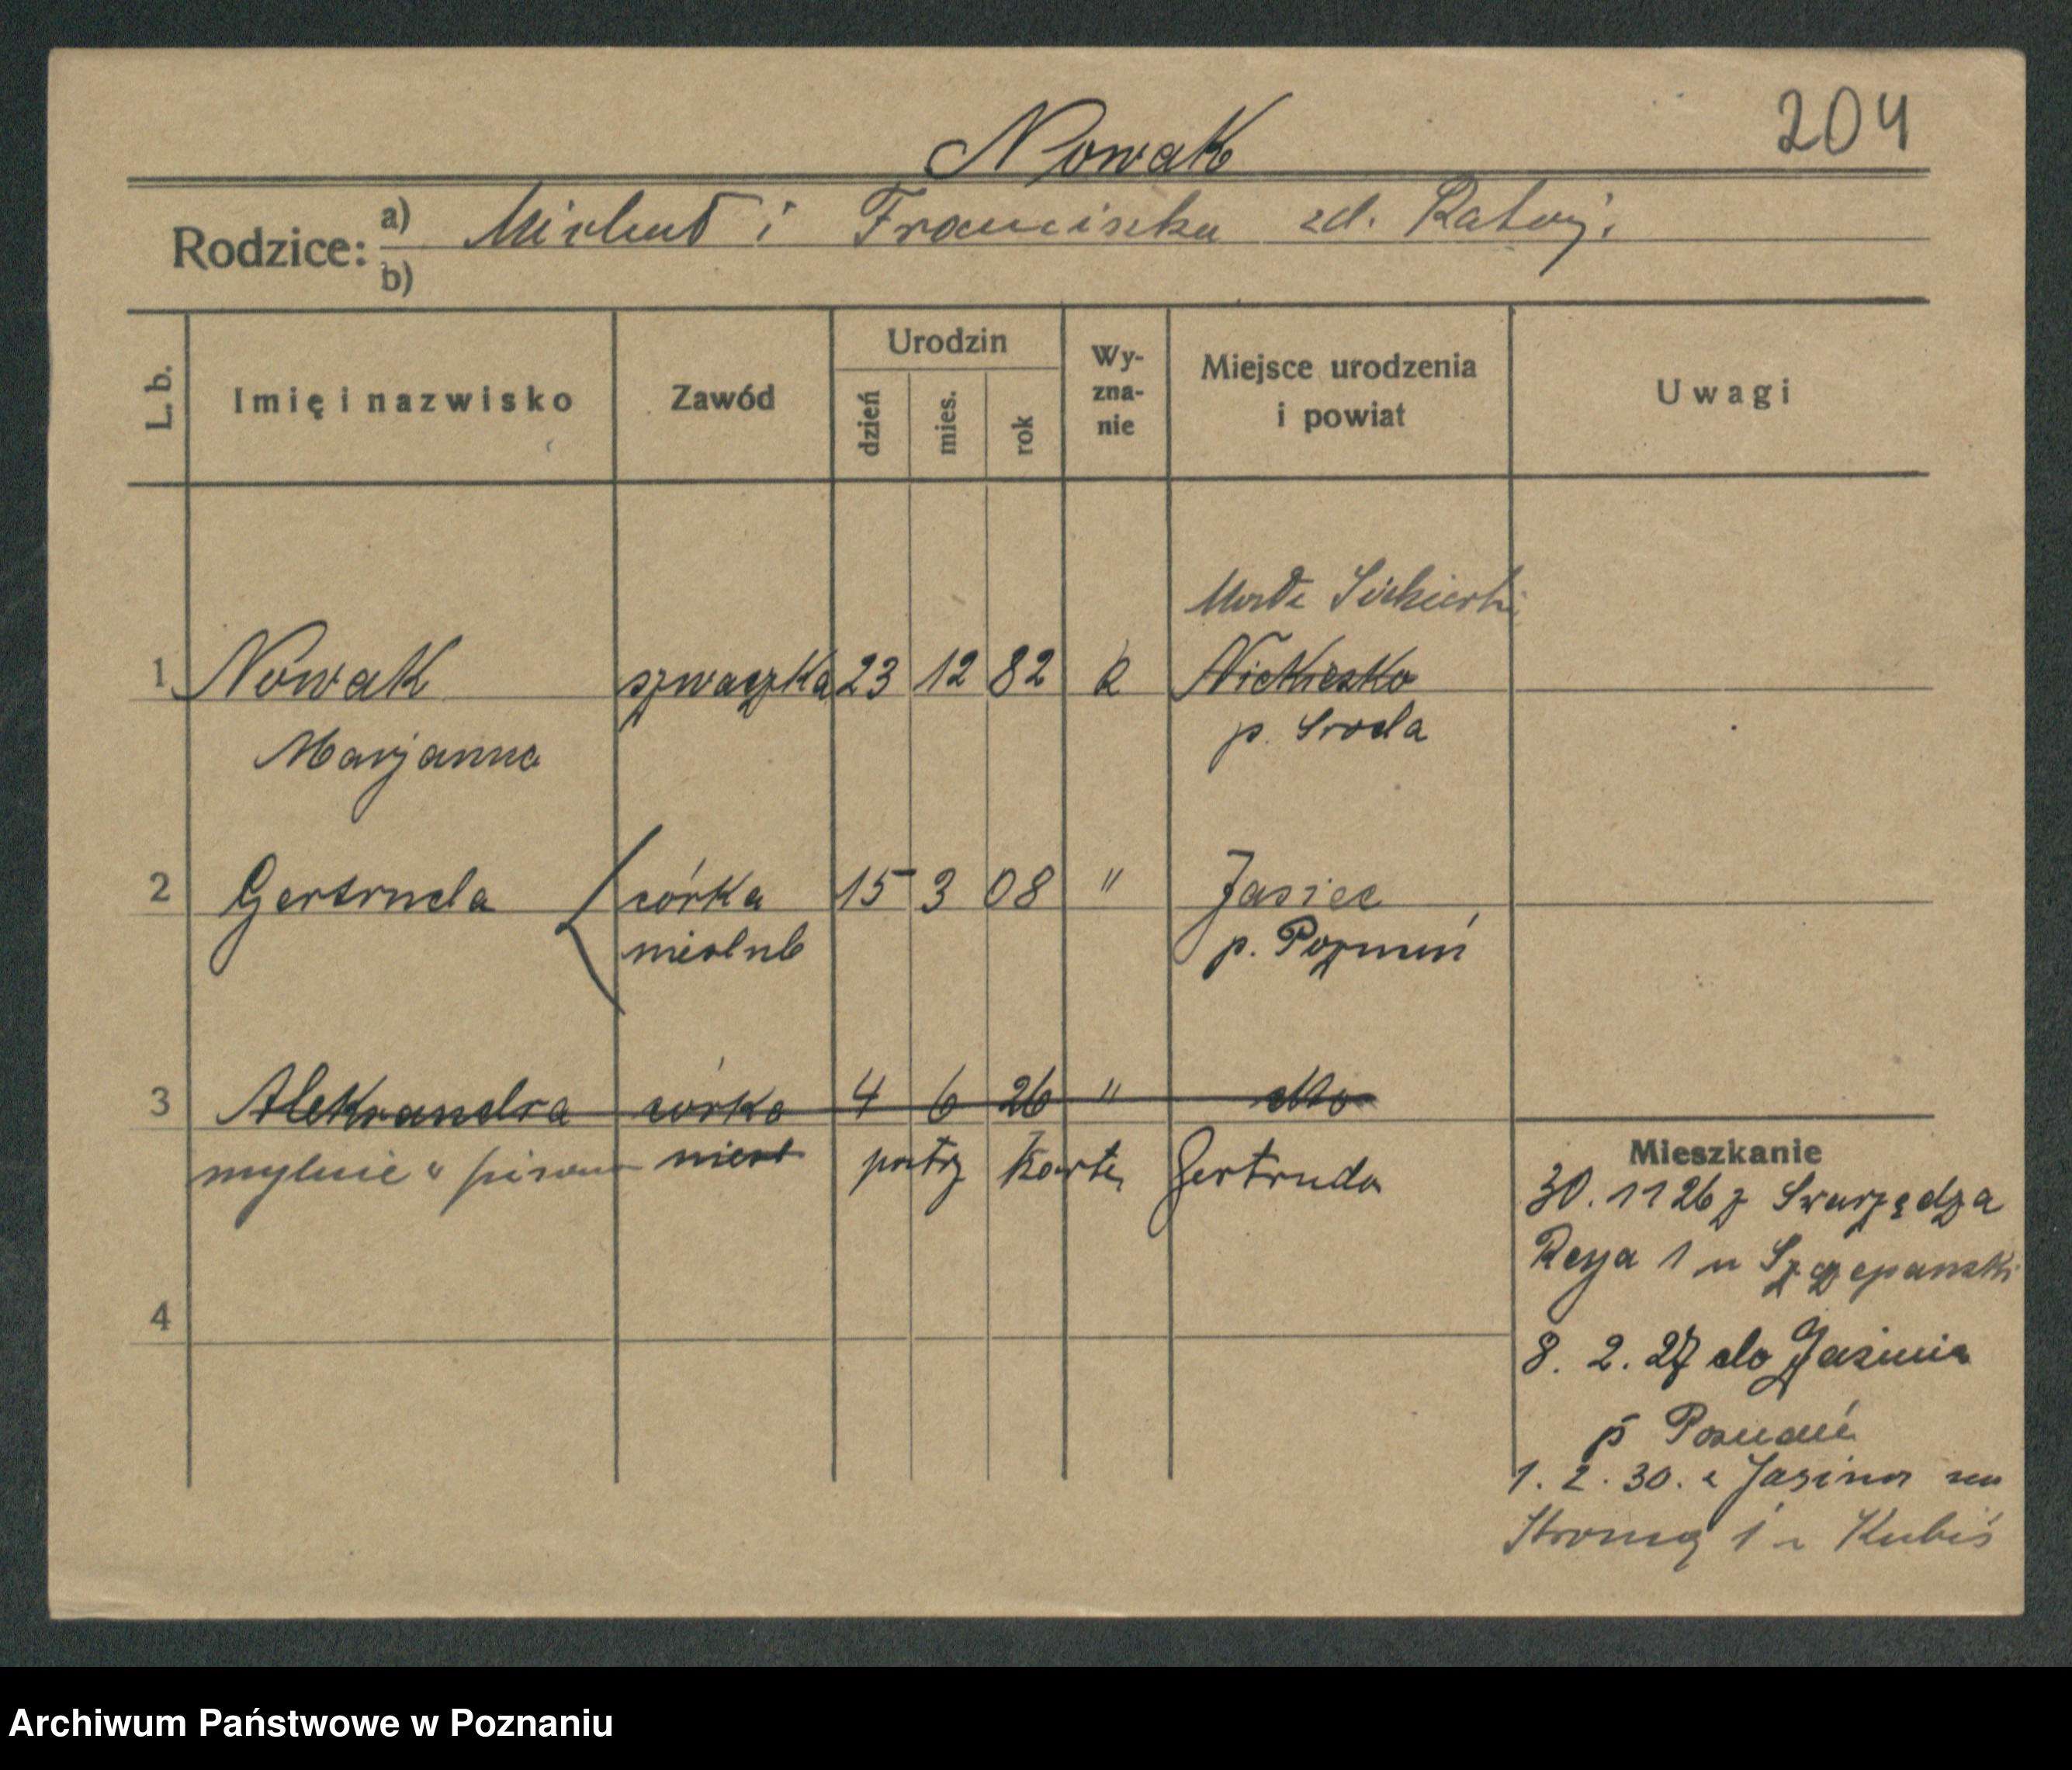 Nowak
204
Rodzice: a) Michał i Franciszka zd. Rataj.
b)
L. b.
Imię i nazwisko
Zawód
Urodzin
dzień
mies.
rok
Wy-
zna-
nie
Miejsce urodzenia
i powiat
Uwagi
Siekierki
1 Nowak szwaczka 23 12 82 k Niekiesko
Marjanna p. Sroda
2 Gertruda córka 15 3 08 " Jasiec
nieślub p. Poznań
3 Aleksandra córka 4 6 26 " dto
mylnie nieśl patrz Kartę Gertruda
4
Mieszkanie
30. 11 26 z Swarzędza
Reya 1 u Szczepanski
8. 2. 27 do Jasinia
p Poznań
1. 2. 30. z Jasina na
Stromą 1 u Kubiś
Archiwum Państwowe w Poznaniu